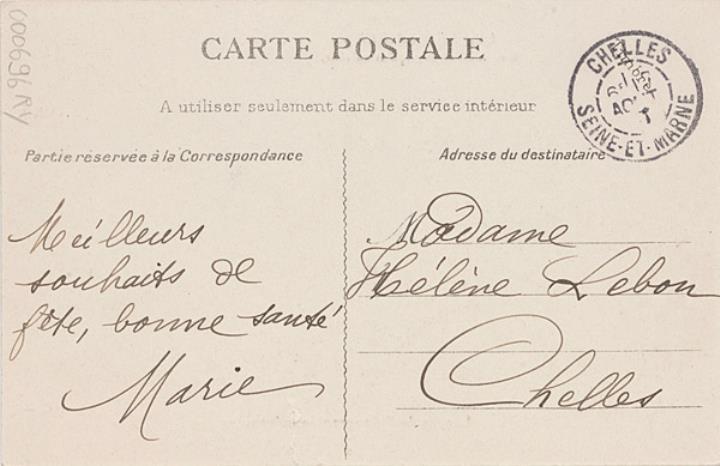 CARTE POSTALE
A utiliser seulement dans le service intérieur
Partie réservée à la Correspondance
Adresse du destinataire
CHELLES
SEINE-ET-MARNE
Meilleurs
souhaits de
fête, bonne santé
Marie
Madame
Hélène Lebon
Chelles